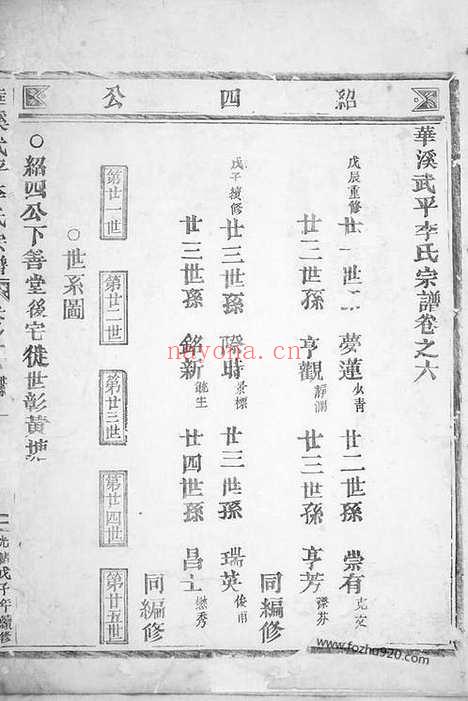 紹四公
華溪武平李氏宗譜卷之六
戊辰重修 廿 世 夢蓮 少青 廿二世孫 崇有 克交
廿二世孫 亨觀 靜瀾 廿三世孫 亨芳 同編修
戊子續修 廿三世孫 際時 景標 廿三世孫 瑞英 俊甫
廿三世孫 銘新 聽生 廿四世孫 昌 懋秀 同編修
第廿一世 第廿二世 第廿三世 第廿四世 第廿五世
○世系圖
○紹四公下善堂後宅徙世彰黃塘
光緒戊子年續修
nayona.cn
www.fozhu920.com